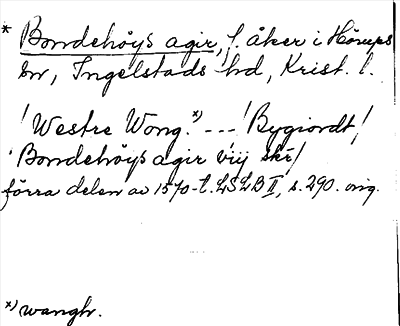 * Bondehøys agir, f. åker i Hörups
sn, Ingelstads hd, Krist. l.
! Westre Wong.x) --- ! Bygiordt!
! Bondehøys agir viij skr!
förra delen av 1570-t. LSLB II, s. 290. orig.
x) wangh.